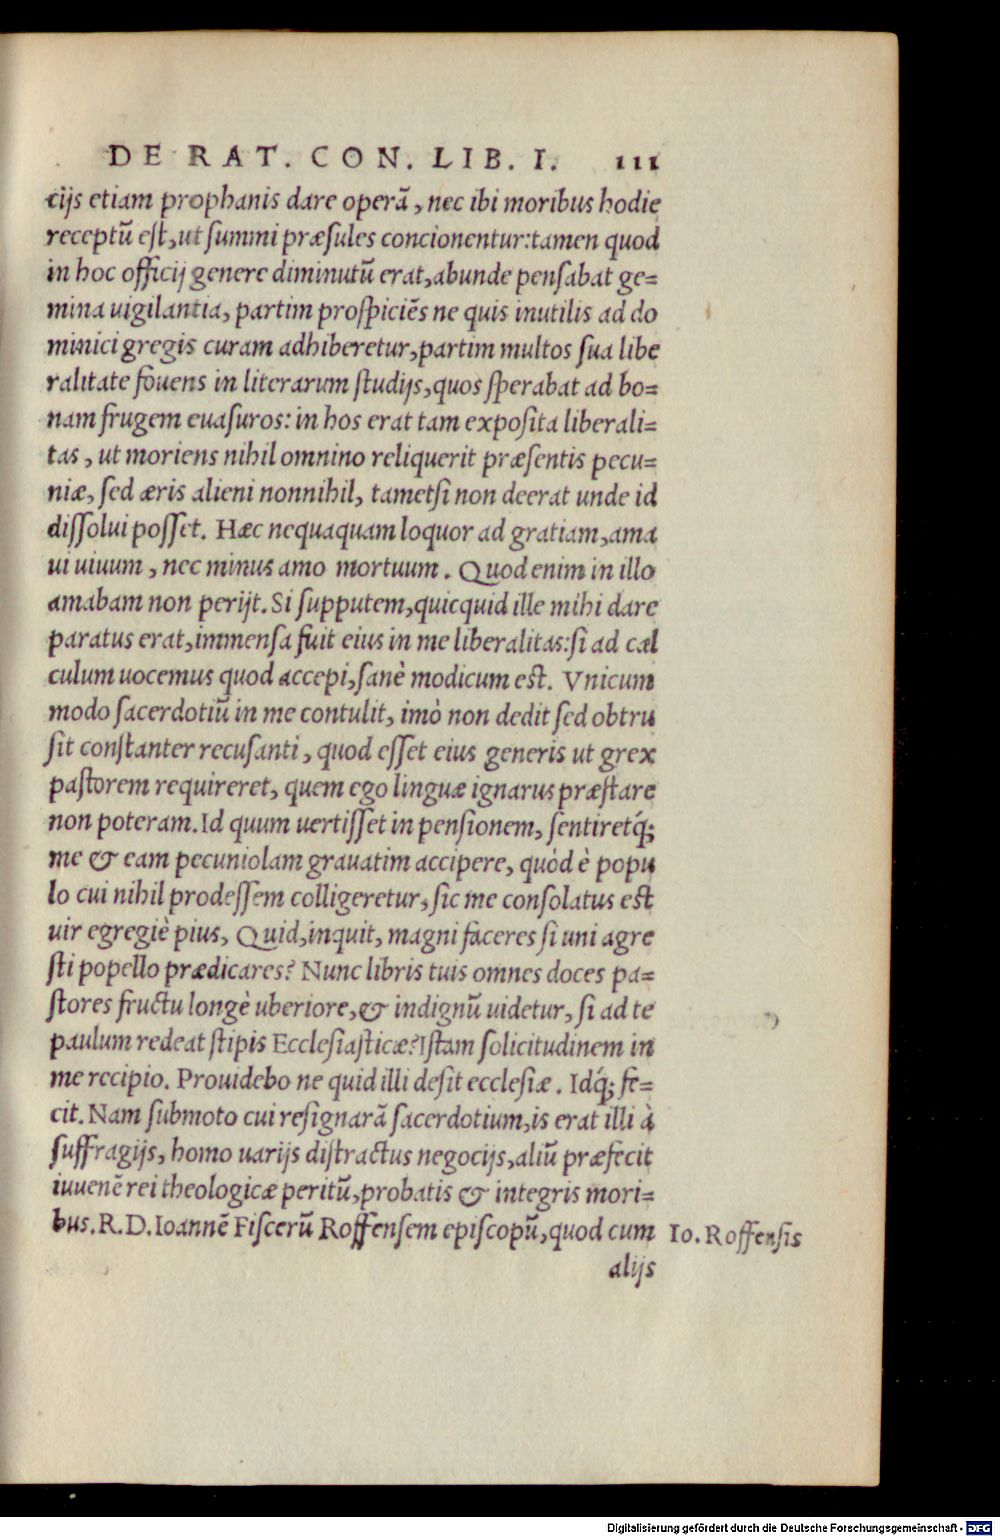 DE RAT. CON. LIB. I. 111
cijs etiam prophanis dare operã, nec ibi moribus hodie
receptũ est, ut summi præsules concionentur: tamen quod
in hoc officij genere diminutũ erat, abunde pensabat ge=
mina uigilantia, partim prospiciẽs ne quis inutilis ad do
minici gregis curam adhiberetur, partim multos sua libe
ralitate fouens in literarum studijs, quos sperabat ad bo=
nam frugem euasuros: in hos erat tam exposita liberali=
tas, ut moriens nihil omnino reliquerit præsentis pecu=
niæ, sed æris alieni nonnihil, tametsi non deerat unde id
dissolui posset. Hæc nequaquam loquor ad gratiam, ama
ui uiuum, nec minus amo mortuum. Quod enim in illo
amabam non perijt. Si supputem, quicquid ille mihi dare
paratus erat, immensa fuit eius in me liberalitas: si ad cal
culum uocemus quod accepi, sanè modicum est. Vnicum
modo sacerdotiũ in me contulit, imò non dedit sed obtru
sit constanter recusanti, quod esset eius generis ut grex
pastorem requireret, quem ego linguæ ignarus præstare
non poteram. Id quum uertisset in pensionem, sentiretq́;
me & eam pecuniolam grauatim accipere, quòd è popu
lo cui nihil prodessem colligeretur, sic me consolatus est
uir egregiè pius, Quid, inquit, magni faceres si uni agre
sti popello prædicares? Nunc libris tuis omnes doces pa=
stores fructu longè uberiore, & indignũ uidetur, si ad te
paulum redeat stipis Ecclesiasticæ? Istam solicitudinem in
me recipio. Prouidebo ne quid illi desit ecclesiæ. Idq́; fe=
cit. Nam submoto cui resignarã sacerdotium, is erat illi à
suffragijs, homo uarijs distractus negocijs, aliũ præfecit
iuuenẽ rei theologicæ peritũ, probatis & integris mori=
bus. R. D. Ioannẽ Fiscerũ Roffensem episcopũ, quod cum
Io. Roffensis
alijs
Digitalisierung gefördert durch die Deutsche Forschungsgemeinschaft - DFG